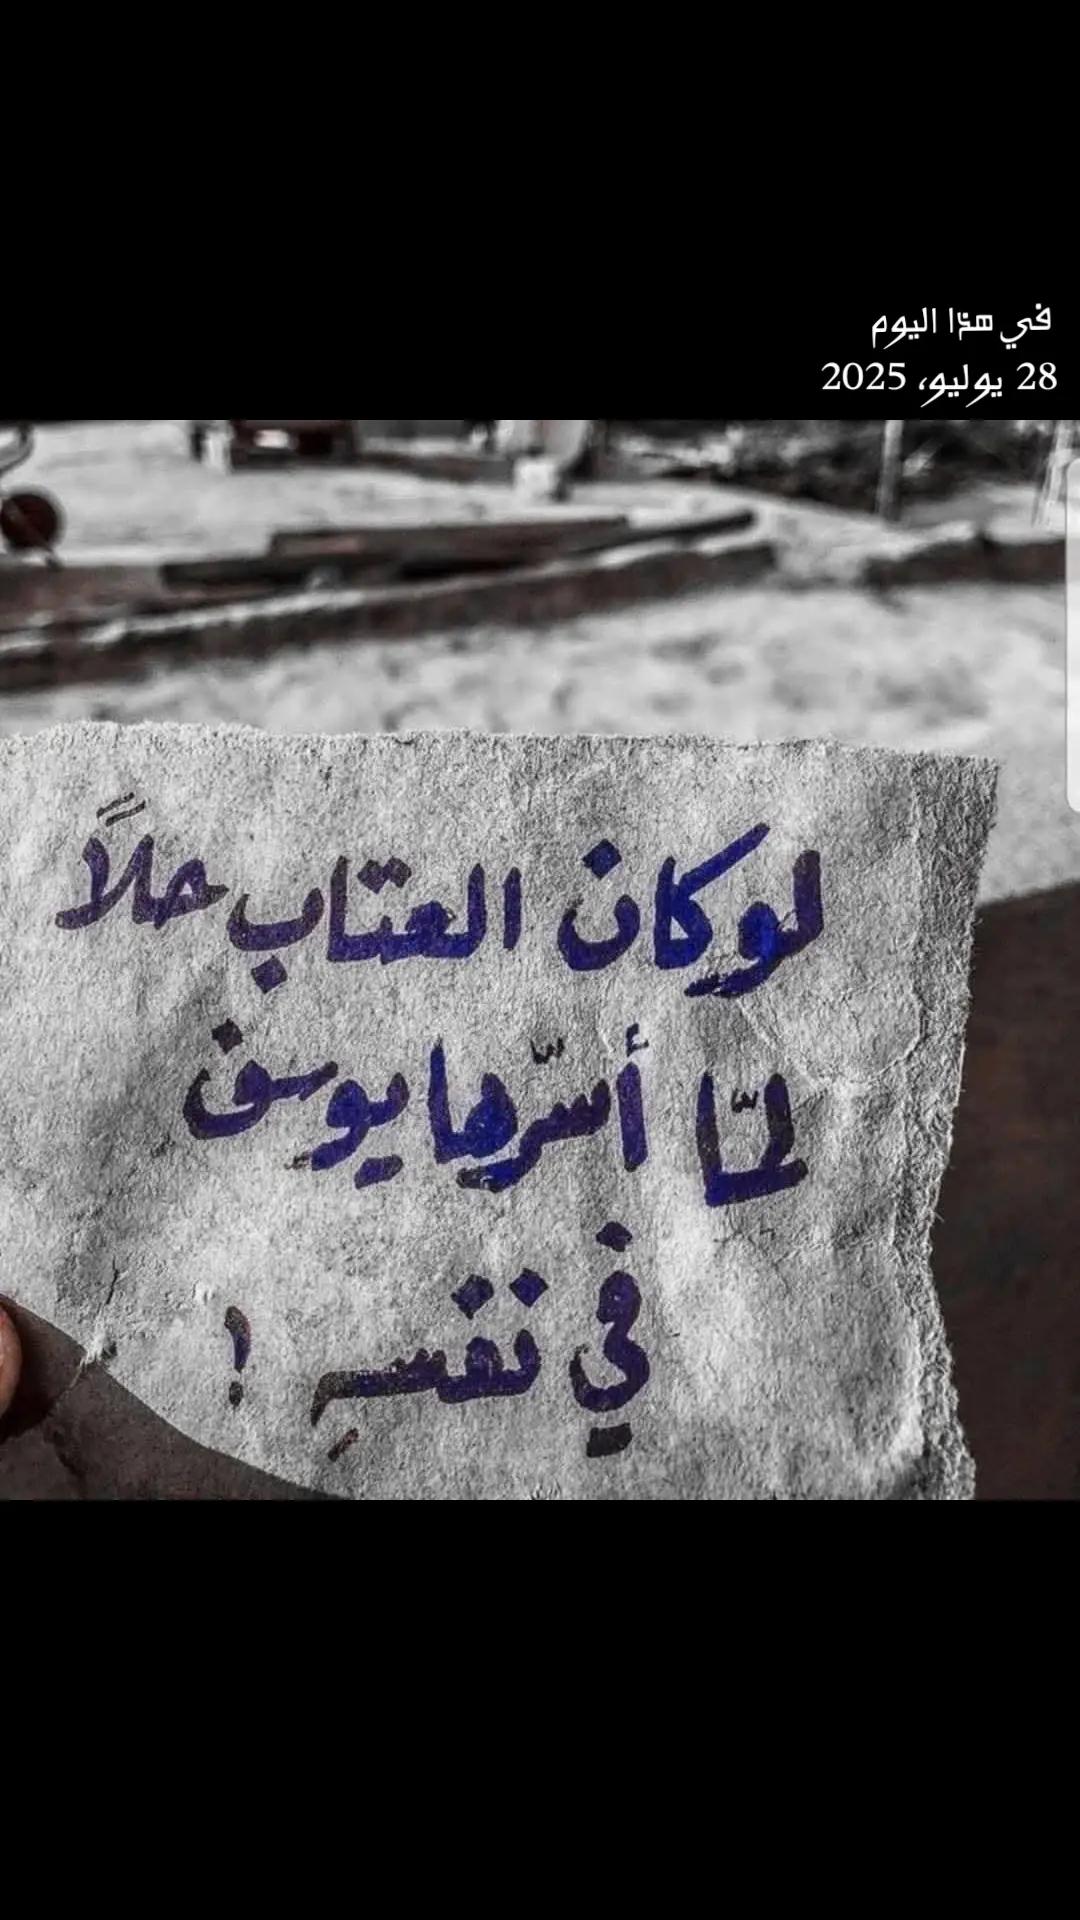 في هذا اليوم
28 يوليو، 2025
لو كان العتاب حلاً
لمّا أسرّها يوسف
في نفسهِ !